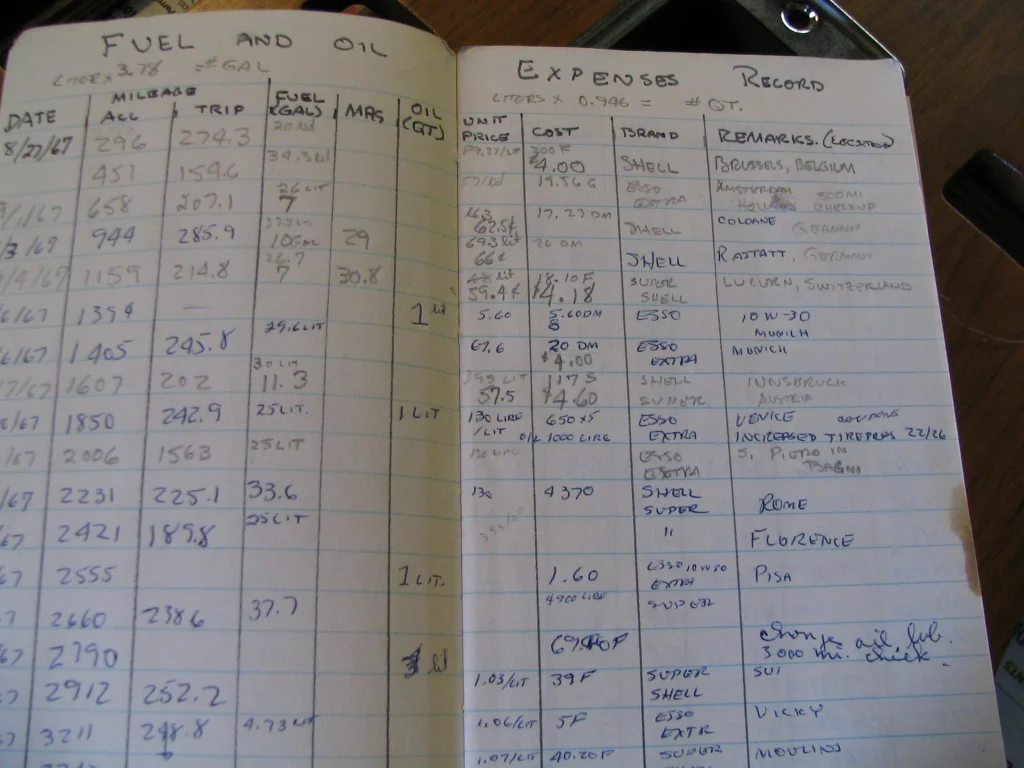 FUEL AND OIL
LITER x 3.78 = # GAL
DATE MILEAGE ALL TRIP FUEL (GAL) MPG OIL (QT)
8/27/67 296 274.3
451 154.6 34.3 lit
658 207.1 26 LIT 7
/3/67 944 285.9 29
/4/67 1159 214.8 26.7 7 30.8
/6/67 139 — 1 lit
/6/67 1405 245.8 29.6 LIT
/7/67 1607 202 30 LIT 11.3
/67 1850 242.9 25 LIT. 1 LIT
/67 2006 1563 25 LIT
/67 2231 225.1 33.6
67 2421 189.8 25 LIT
67 2555 1 LIT.
2660 238.6 37.7
67 2790 lit
2912 252.2
3211 298.8 4.73 LIT
EXPENSES RECORD
LITERS x 0.946 = # QT.
UNIT PRICE COST BRAND REMARKS. (LOCATION)
300 F $4.00 SHELL BRUSSELS, BELGIUM
19.56 G ESSO EXTRA AMSTERDAM
62.5¢ 17.23 DM SHELL COLOGNE GERMANY
69.3 lit 66¢ 26 DM SHELL RASTATT, GERMANY
59.4¢ 18.10 F $4.18 SUPER SHELL LUCURN, SWITZERLAND
5.60 5.60 DM ESSO 10 W-30 MUNICH
67.6 20 DM $4.00 ESSO EXTRA MUNICH
57.5 117 S $4.60 SHELL SUPER INNSBRUCK AUSTRIA
130 LIRE / LIT 650 x 5 ESSO VENICE COUPONS
OIL 1000 LIRE EXTRA INCREASED TIRE PRES 22/26
130 LIRE ESSO EXTRA S. PIETRO IN BAGNO
130 4370 SHELL SUPER ROME
" FLORENCE
1.60 ESSO 10W30 EXTRA PISA
4900 LIRE SUPER
change oil, lub.
3000 mi. check.
1.03/LIT 39 F SUPER SHELL SUI
1.06/LIT 5 F ESSO EXTR VICKY
1.07/LIT 40.20 F SUPER MOULINS